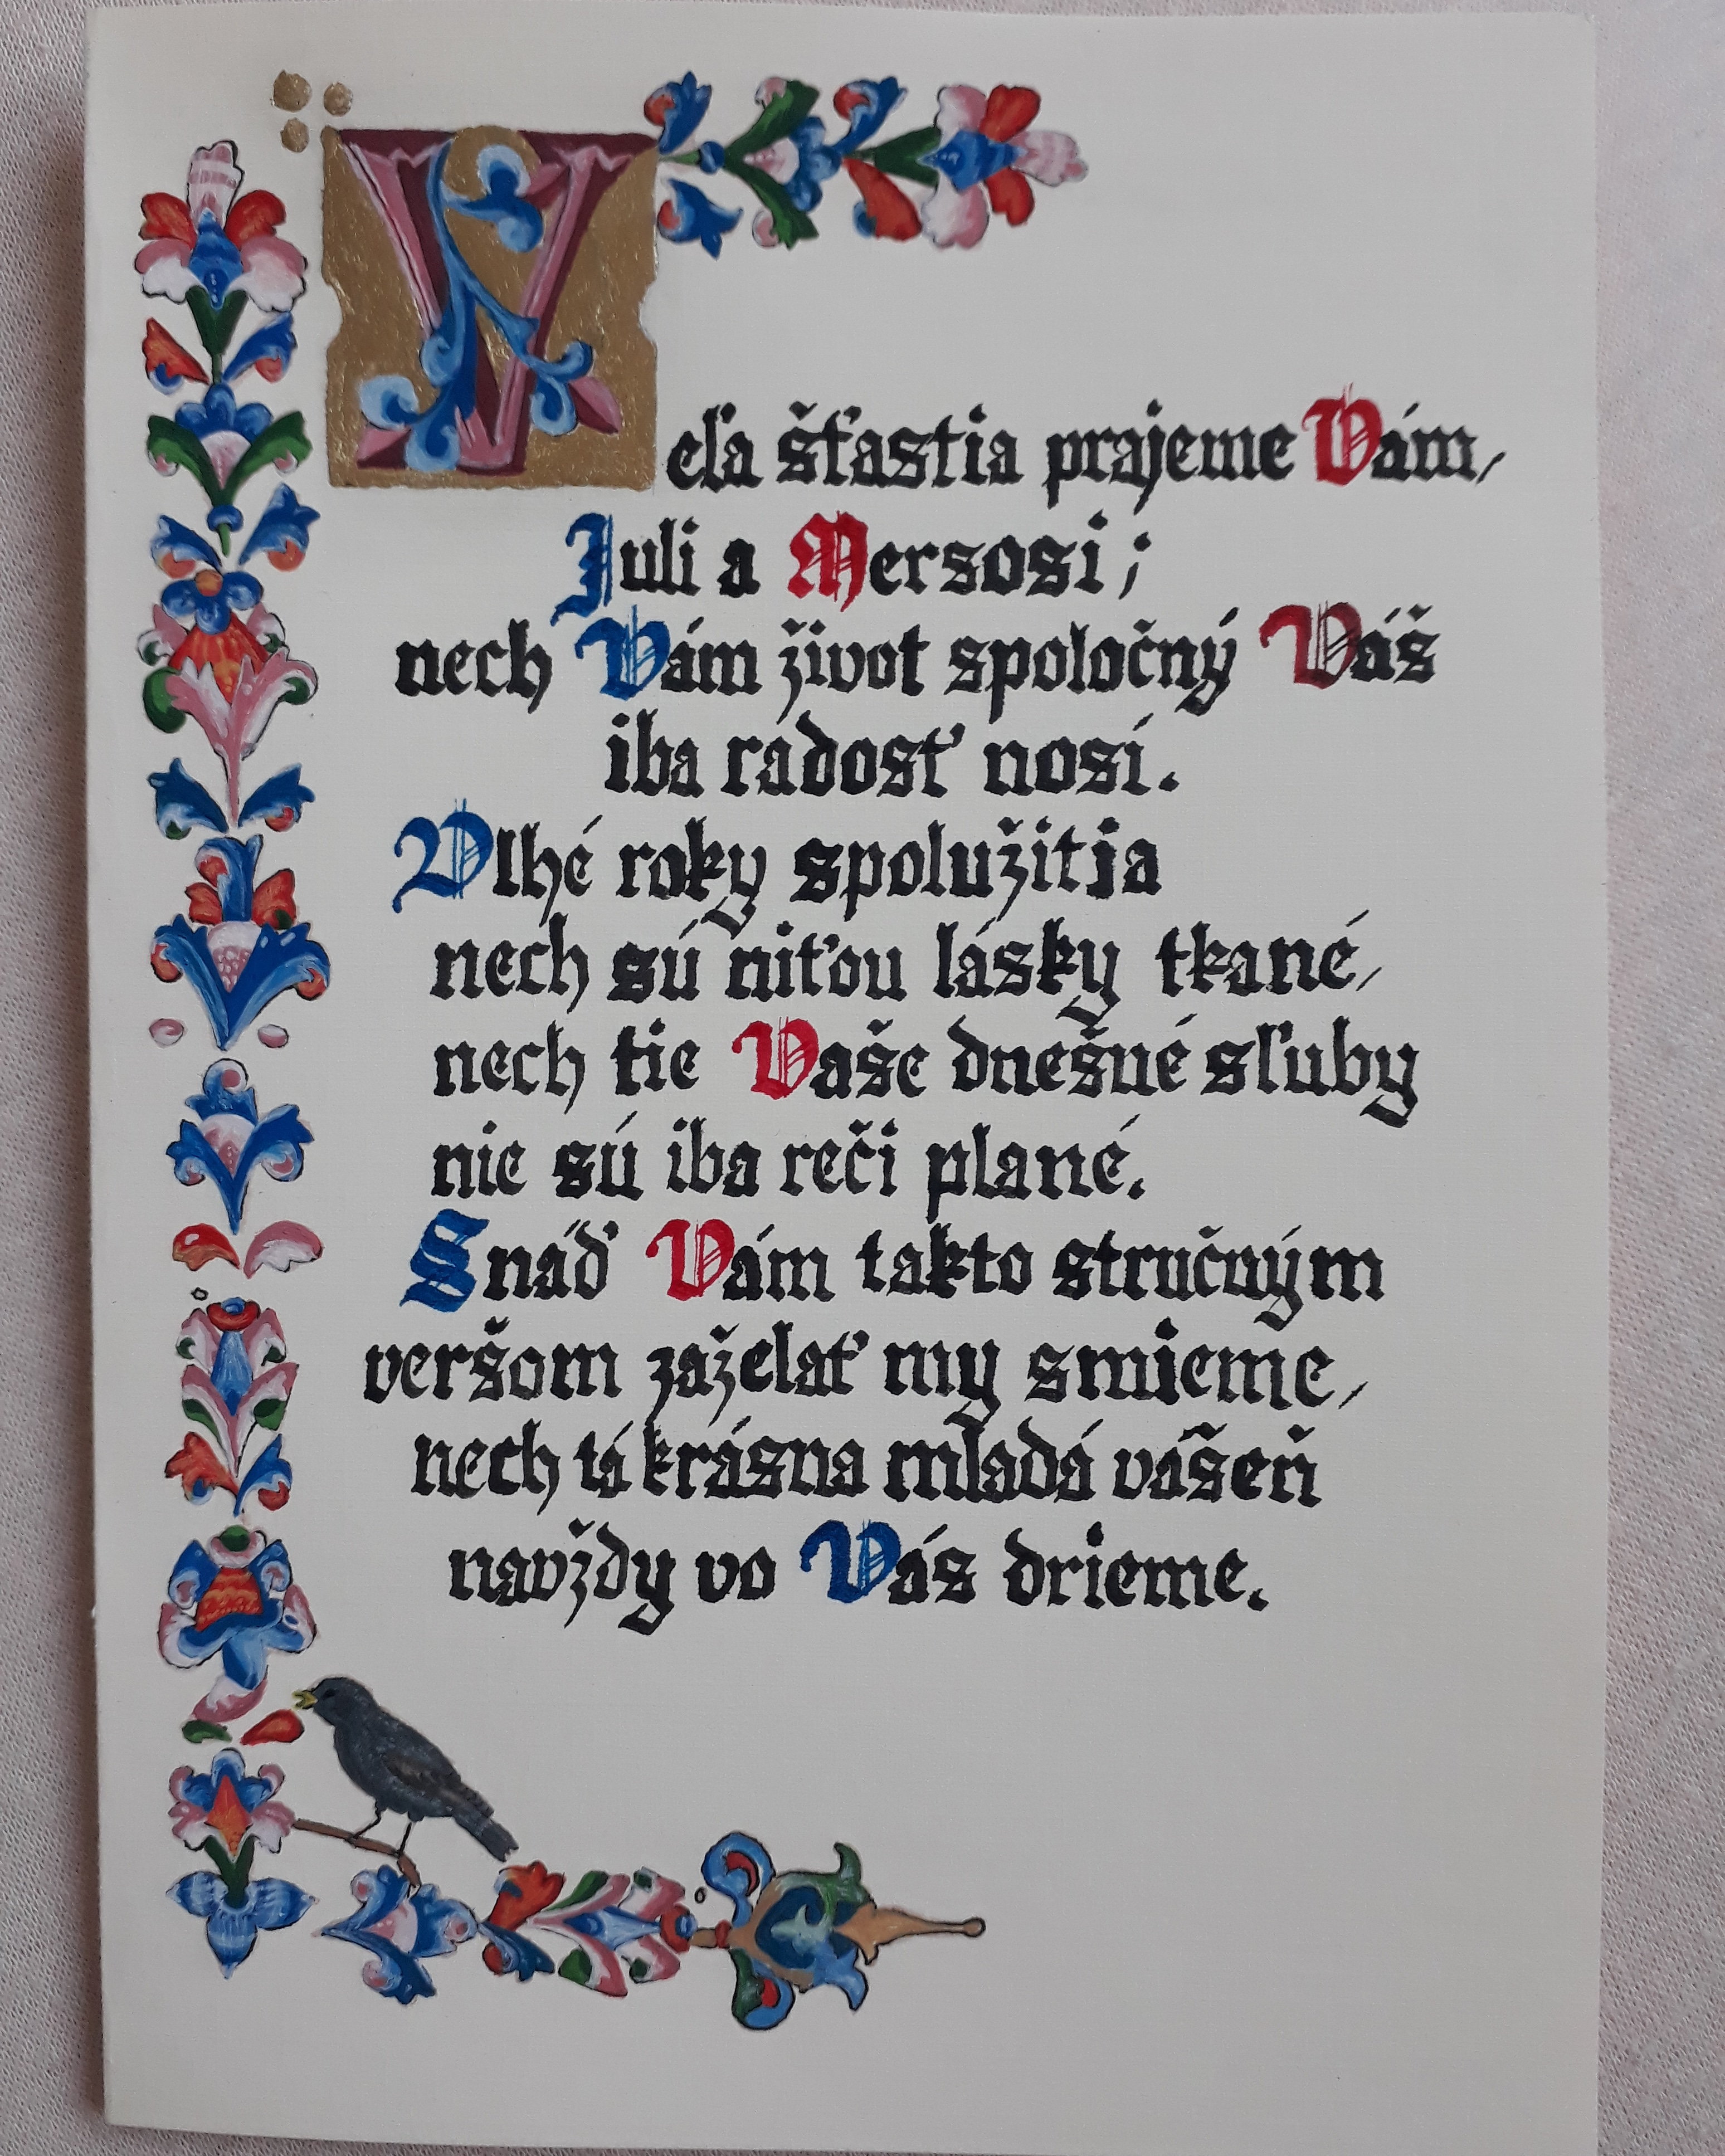 Veľa šťastia prajeme Vám,
Juli a Mersosi;
nech Vám život spoločný Váš
iba radosť nosí.
Dlhé roky spolužitia
nech sú niťou lásky tkané,
nech tie Vaše dnešné sľuby
nie sú iba reči plané.
Snáď Vám takto stručným
veršom zaželať my smieme,
nech tá krásna mladá vášeň
navždy vo Vás drieme.